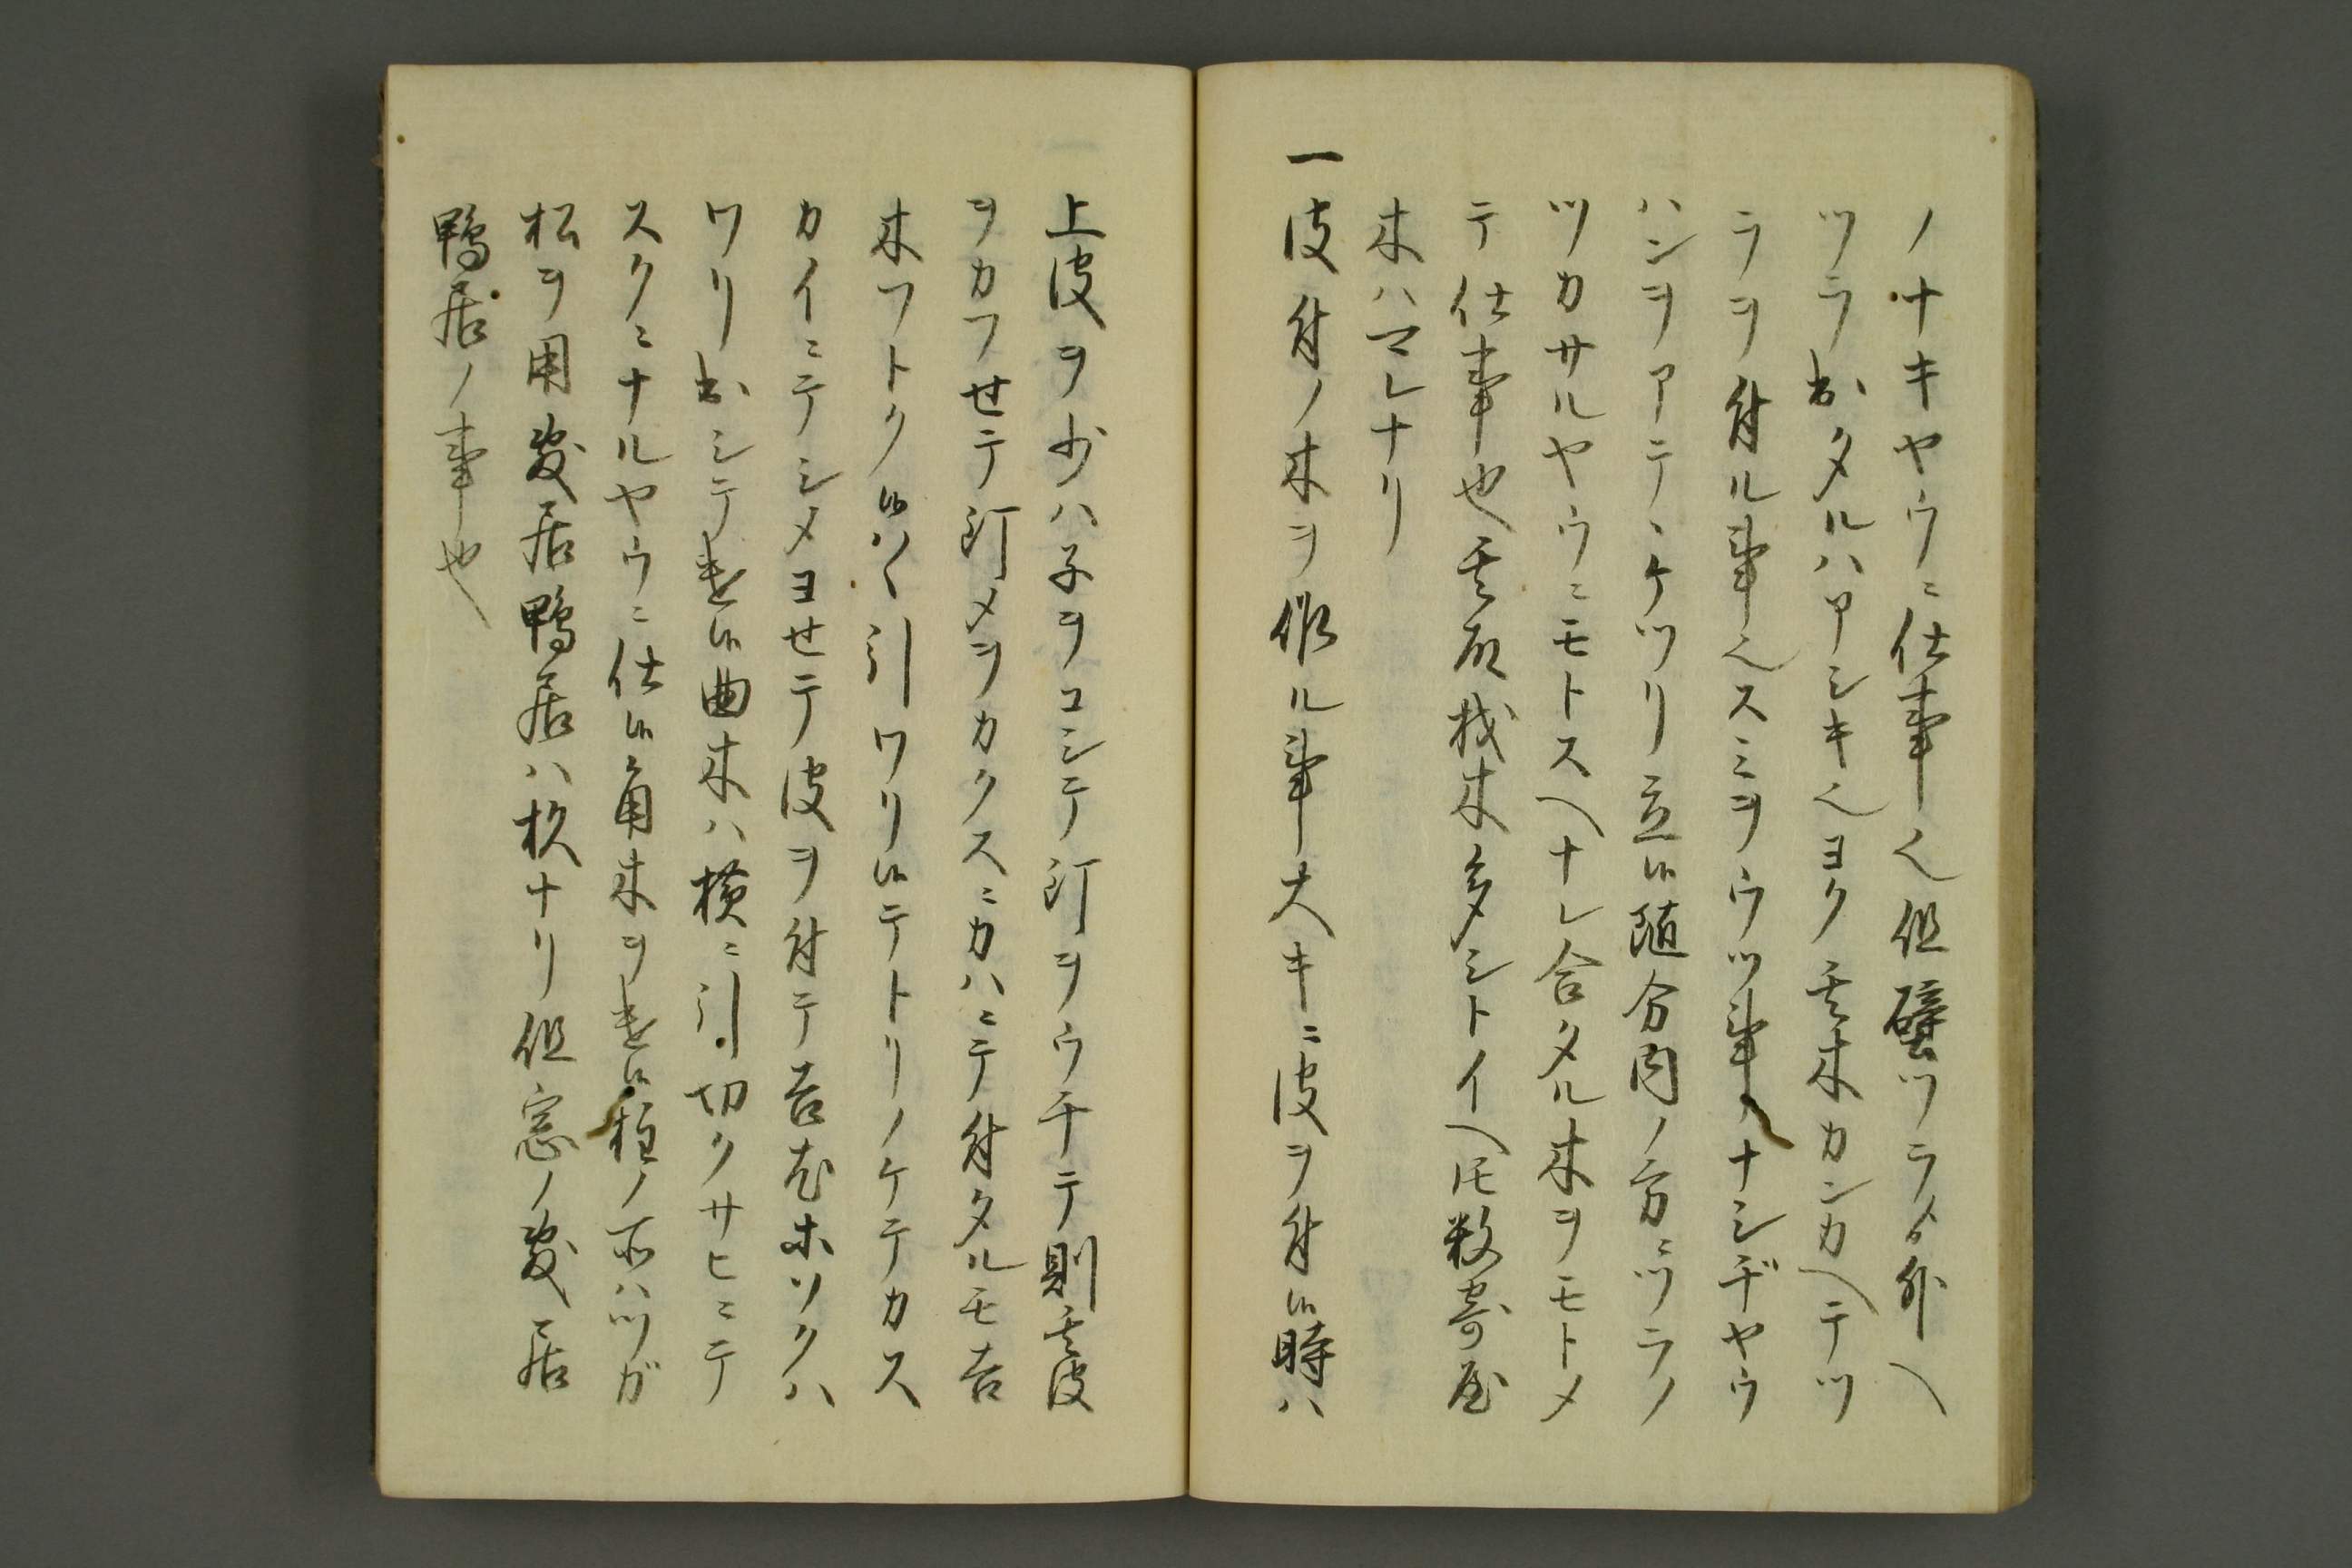 ノナキヤウニ仕事也但壁ツラメ外ヘ
ツラ出タルハアシキ也ヨク其木カンカヘテツ
ラヲ付ル事也スミヲウツ事ノナシデヤウ
ハンヲアテヽケツリ立候随分内ノ方ニツラノ
ツカサルヤウニモトスヘナレ合タル木ヲモトメ
テ仕事也其故材木多シトイヘ𪜈数寄屋
木ハマレナリ
一皮付ノ木ヲ作ル事大キニ皮ヲ付候時ハ
上皮ヲ少ハ子ヲコシテ釘ヲウチテ則其皮
ヲカフせテ釘メヲカクスニカハニテ付タルモ吉
木フトク候ハヽ引ワリ候テトリノケテカス
カイニテシメヨせテ皮ヲ付テ吉尤ホソクハ
ワリ出シテ遣候曲木ハ横ニ引切クサヒニテ
スクニナルヤウニ仕候角木ヲ遣候柱ノ所ハツガ
松ヲ用敷居鴨居ハ杉ナリ但窓ノ敷居
鴨居ノ事也